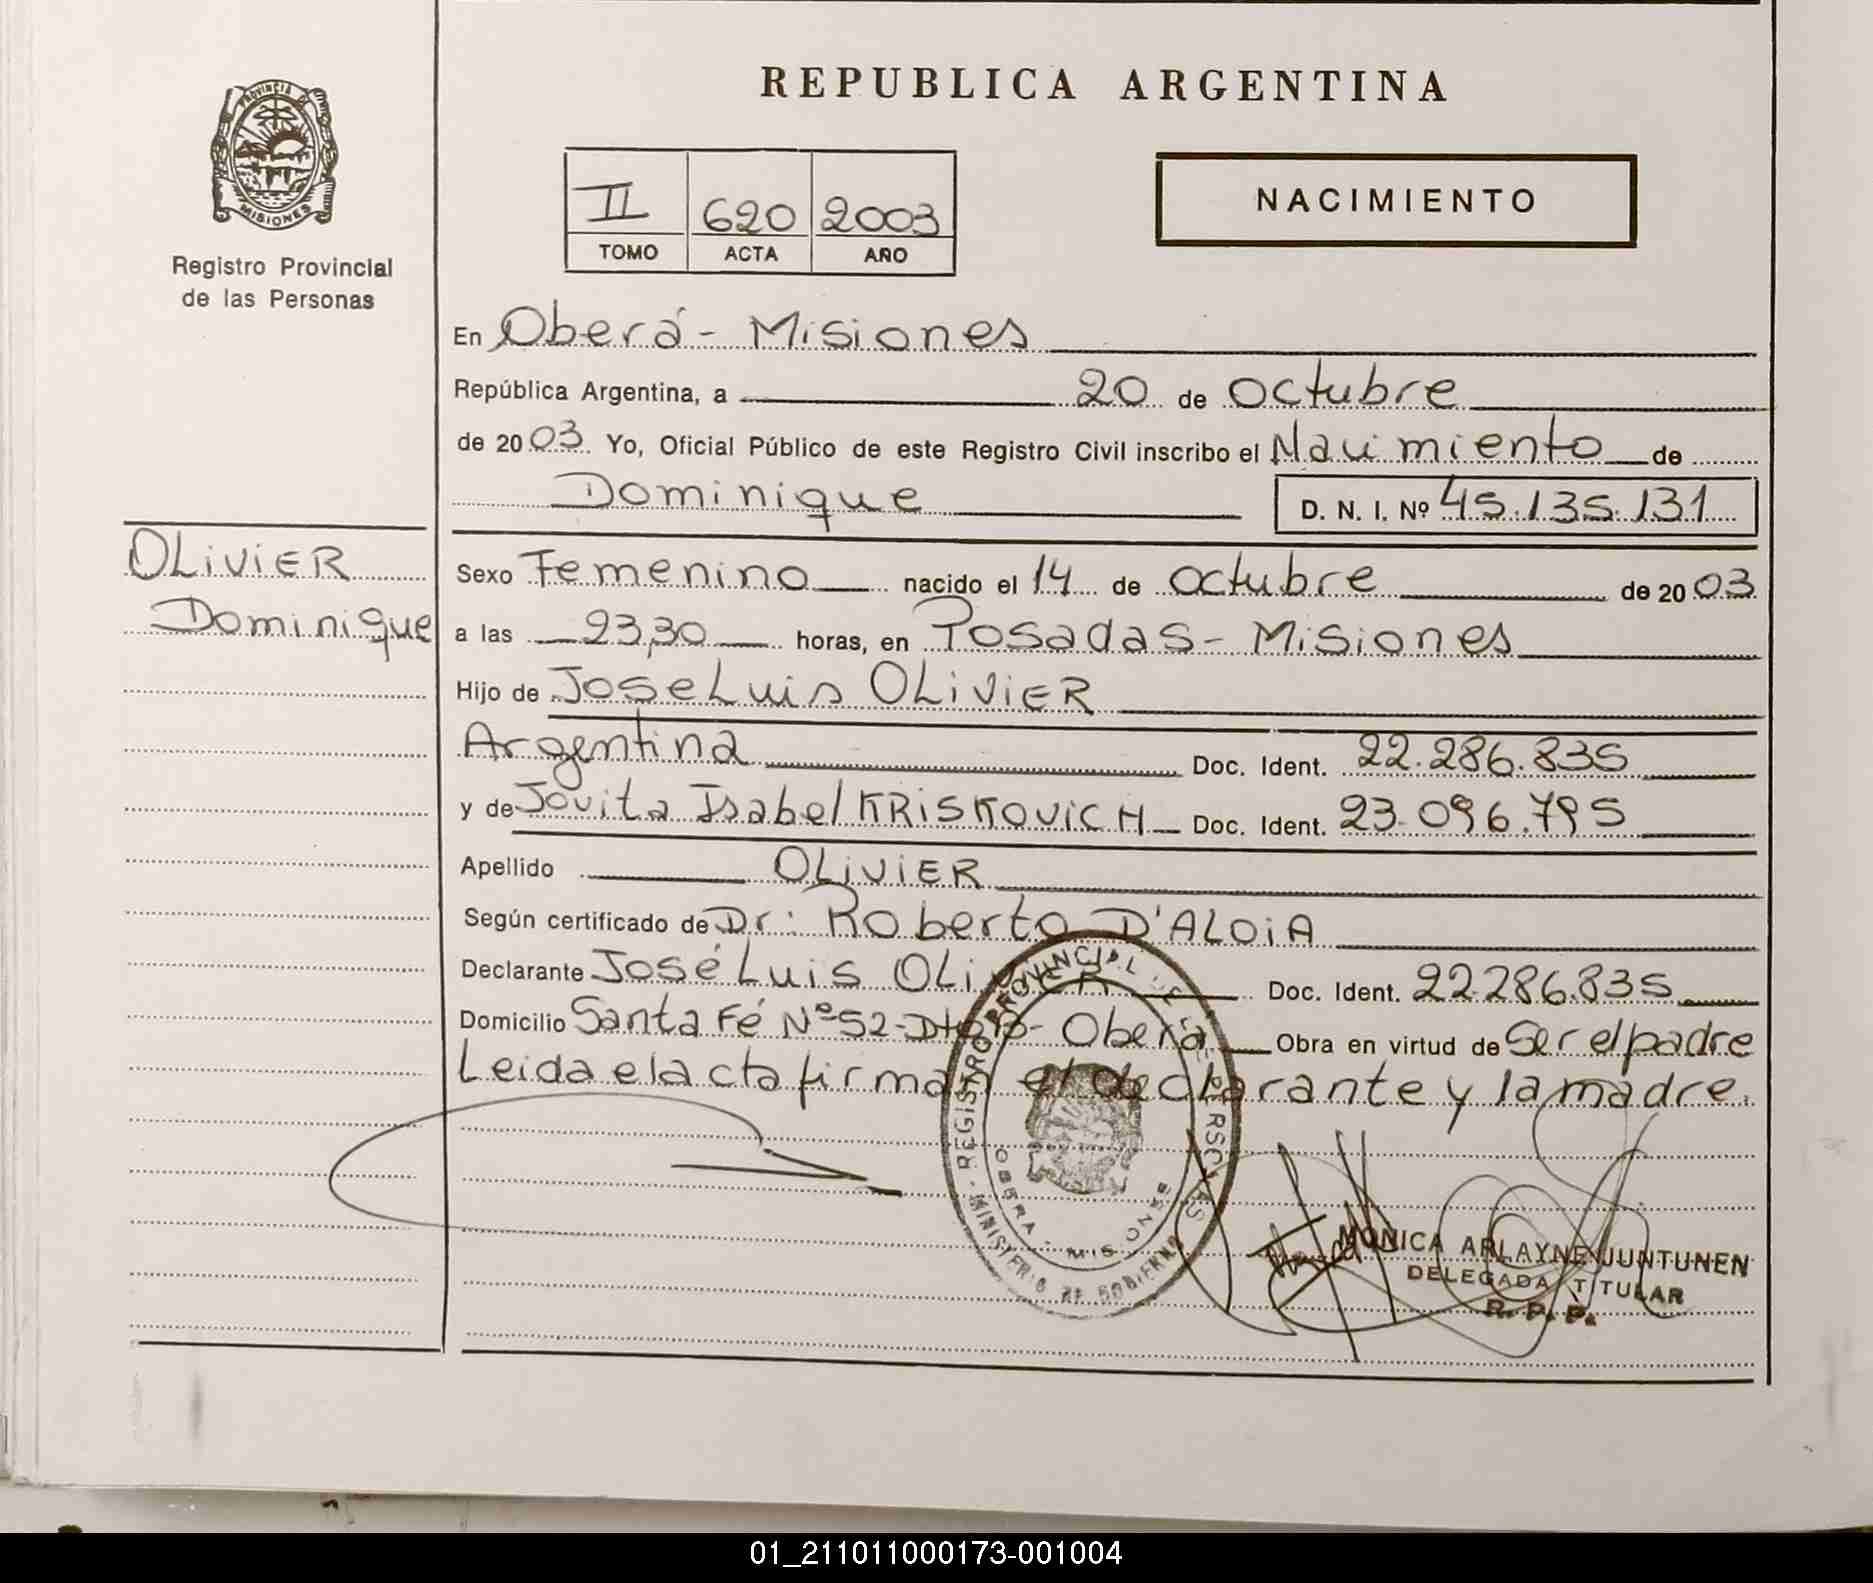 PROVINCIA DE
MISIONES
Registro Provincial
de las Personas
REPUBLICA ARGENTINA
II 620 2003
TOMO ACTA AÑO
NACIMIENTO
En Oberá - Misiones
República Argentina, a 20 de octubre
de 2003. Yo, Oficial Público de este Registro Civil inscribo el Nacimiento de
Dominique D. N. I. Nº 45.135.131
OLiViER
Dominique
Sexo Femenino nacido el 14 de octubre de 2003
a las 23,30 horas, en Posadas - Misiones
Hijo de Jose Luis OLiViER
Argentina Doc. Ident. 22.286.835
y de Jovita Isabel KRiSKOViCH Doc. Ident. 23.096.795
Apellido OLiViER
Según certificado de Dr: Roberto D'ALOiA
Declarante José Luis OLiViER Doc. Ident. 22.286.835
Domicilio Santa Fé Nº 52 - Oberá Obra en virtud de Ser el padre
Leida el acta firman el declarante y la madre.
REGISTRO PROVINCIAL DE LAS PERSONAS
MINISTERIO DE GOBIERNO
OBERA - MISIONES
MONICA ARLAYNE JUNTUNEN
DELEGADA TITULAR
R. P. P.
01_211011000173-001004